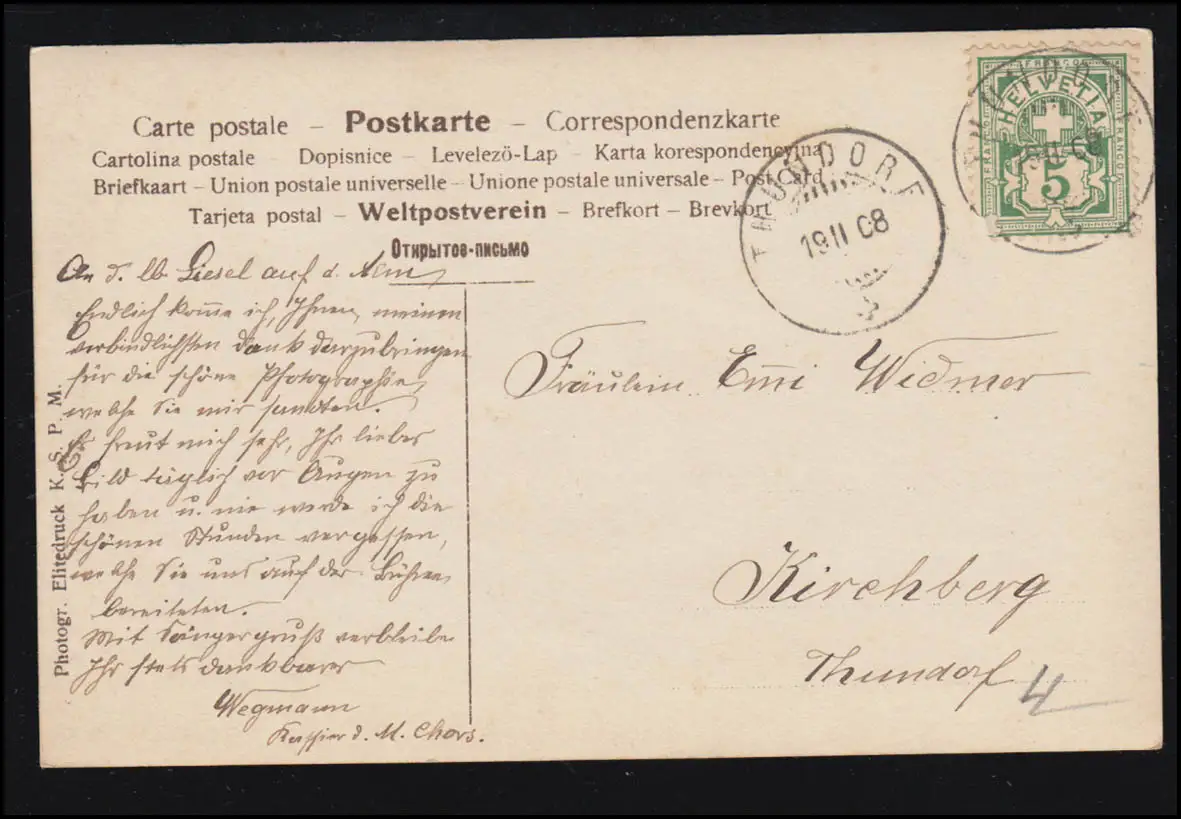 Carte postale – Postkarte – Correspondenzkarte
Cartolina postale – Dopisnice – Levelezö-Lap – Karta korespondencyina
Briefkaart – Union postale universelle – Unione postale universale – Post Card
Tarjeta postal – Weltpostverein – Brefkort – Brevkort
Открытое-письмо
THUNDORF
19 II 08
THUNDORF
II 08
FRANCO
HELVETIA
FRANCO
FRANCO
5
An d. lb. Liesel auf d. Alm
Endlich kom̅e ich, Ihnen, meinen
verbindlichsten Dank darzubringen
für die schöne Photographie,
welche Sie mir sandten.
Es freut mich sehr, Ihr liebes
Bild täglich vor Augen zu
haben u. nie werde ich die
schönen Stunden vergessen,
welche Sie uns auf der Bühne
bereiteten.
Mit Sängergruß verbleibe
Ihr stets dankbarer
Wegmann
Kassier d. M. Chors.
Fräulein Em̅i Widmer
Kirchberg
Thundorf
4
Photogr. Elitedruck K. S. P. M.